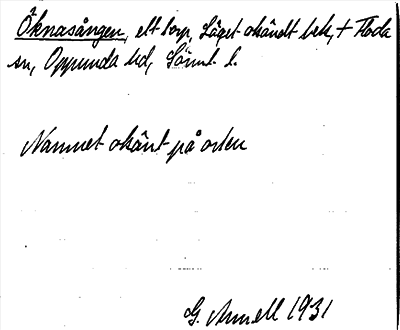 Öknasången, ett torp, Läget okändt bek, + Floda
sn, Oppunda hd, Sörml. l.
Namnet okänt på orten
G. Annell 1931